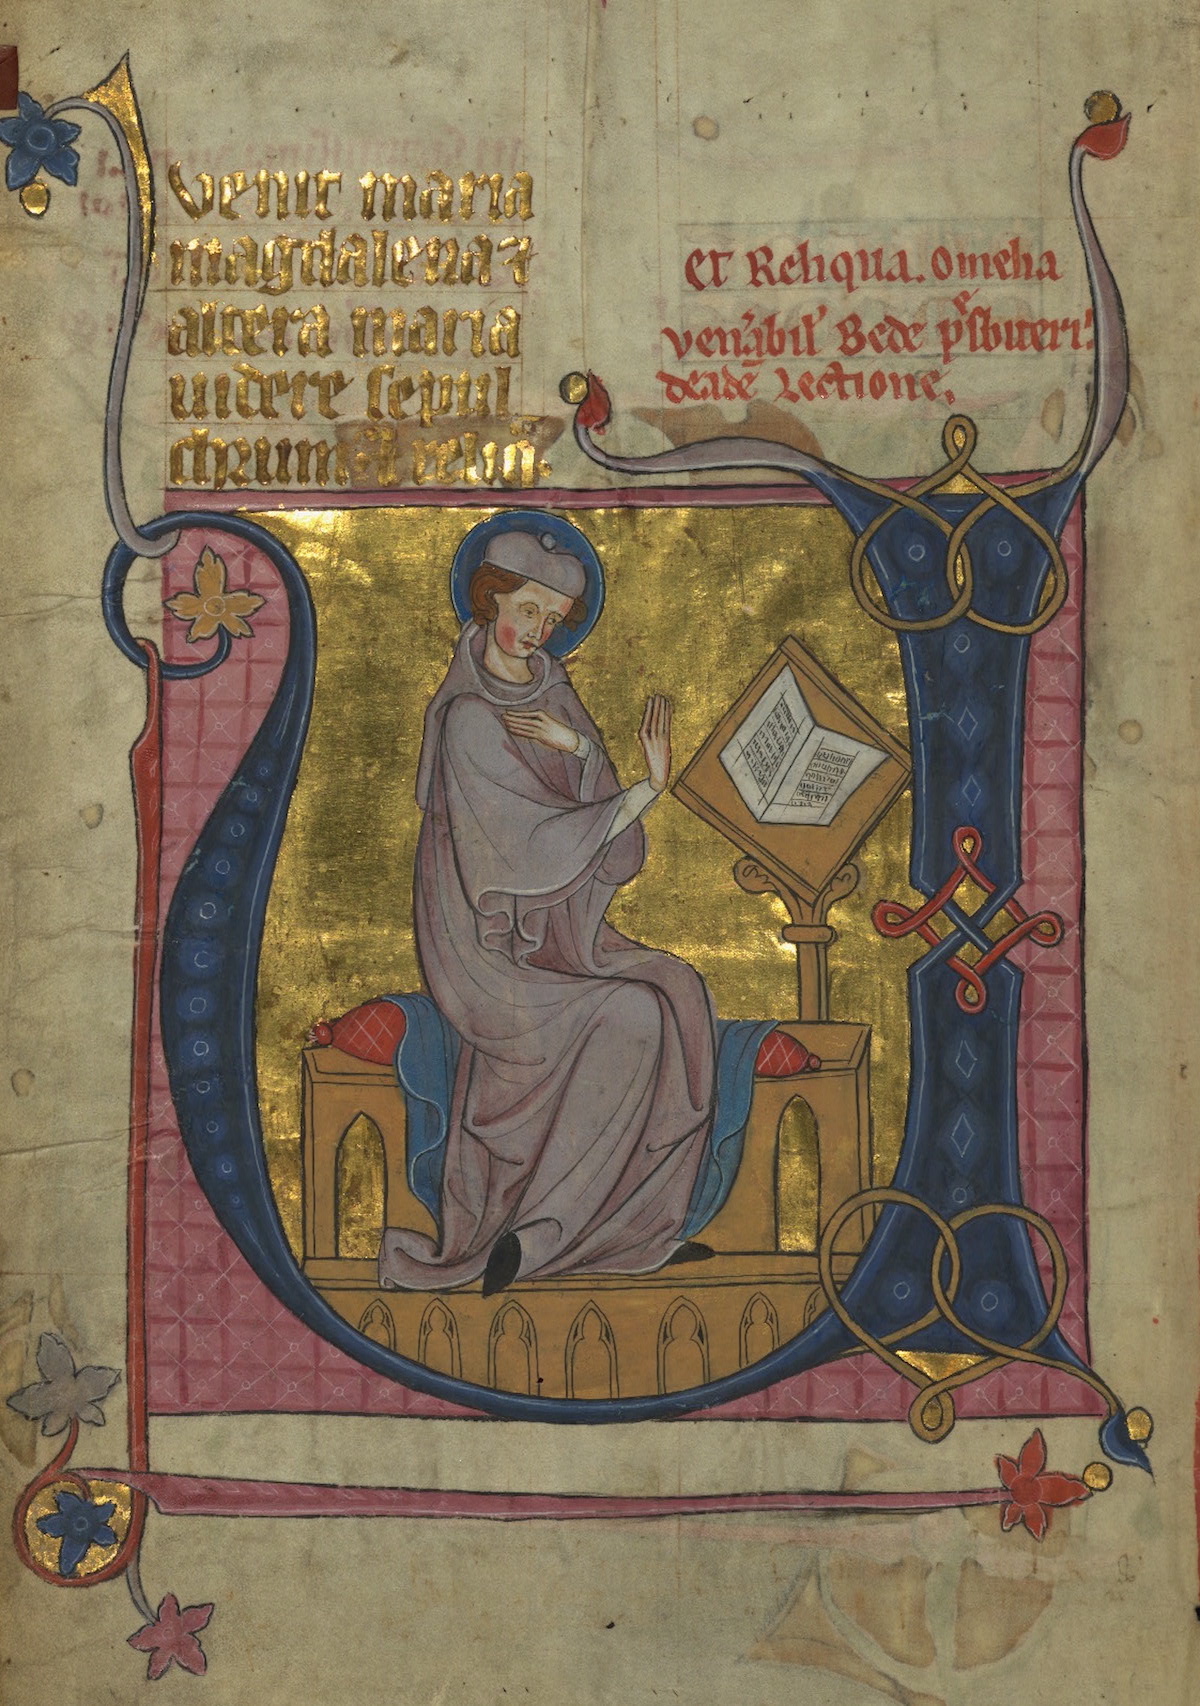 venit maria
magdalena ⁊
altera maria
uidere sepul
chrum Et reliq̅.
et Reliqua. Omelia
ven̅abil' Bede p̅sbiteri:
de ead̅e Lectione.